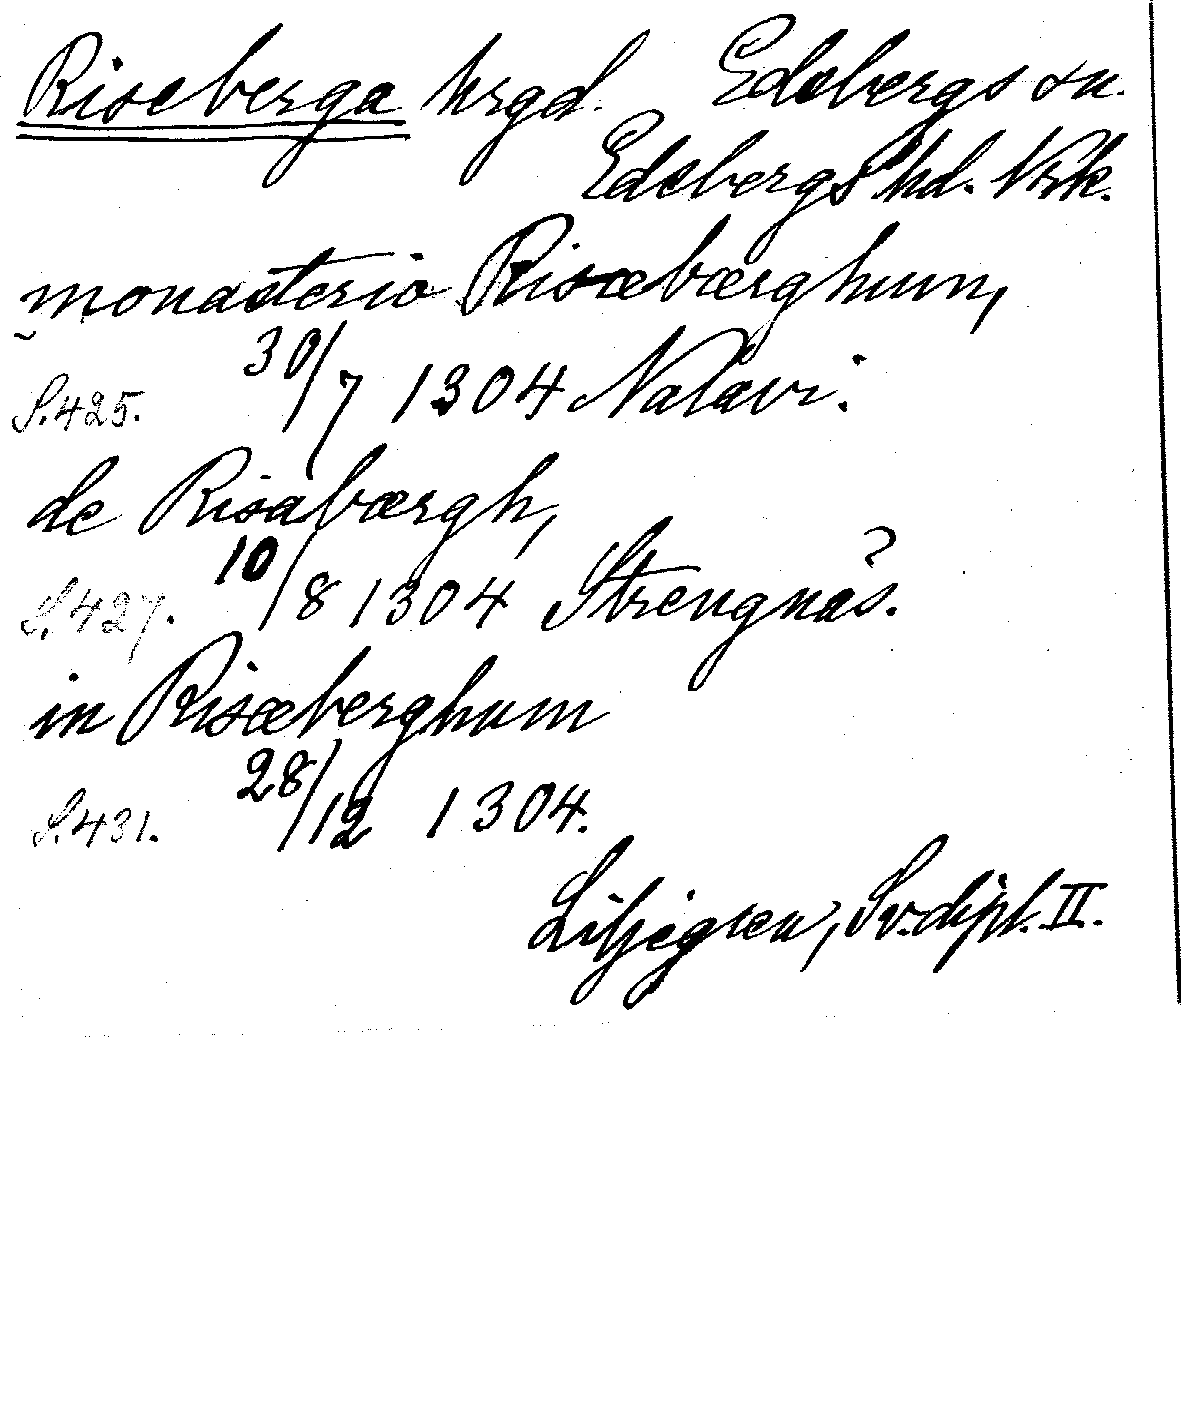 Riseberga hrgd. Edsbergs sn.
Edsbergs hd. Nrk.
monasterio Risæbærghum,
S. 425. 30/7 1304 Nalavi.
de Risabærgh,
S. 427. 10/8 1304 Strengnäs. ?
in Risæberghum
S. 431. 28/12 1304.
Liljegren, Sv. dipl. II.